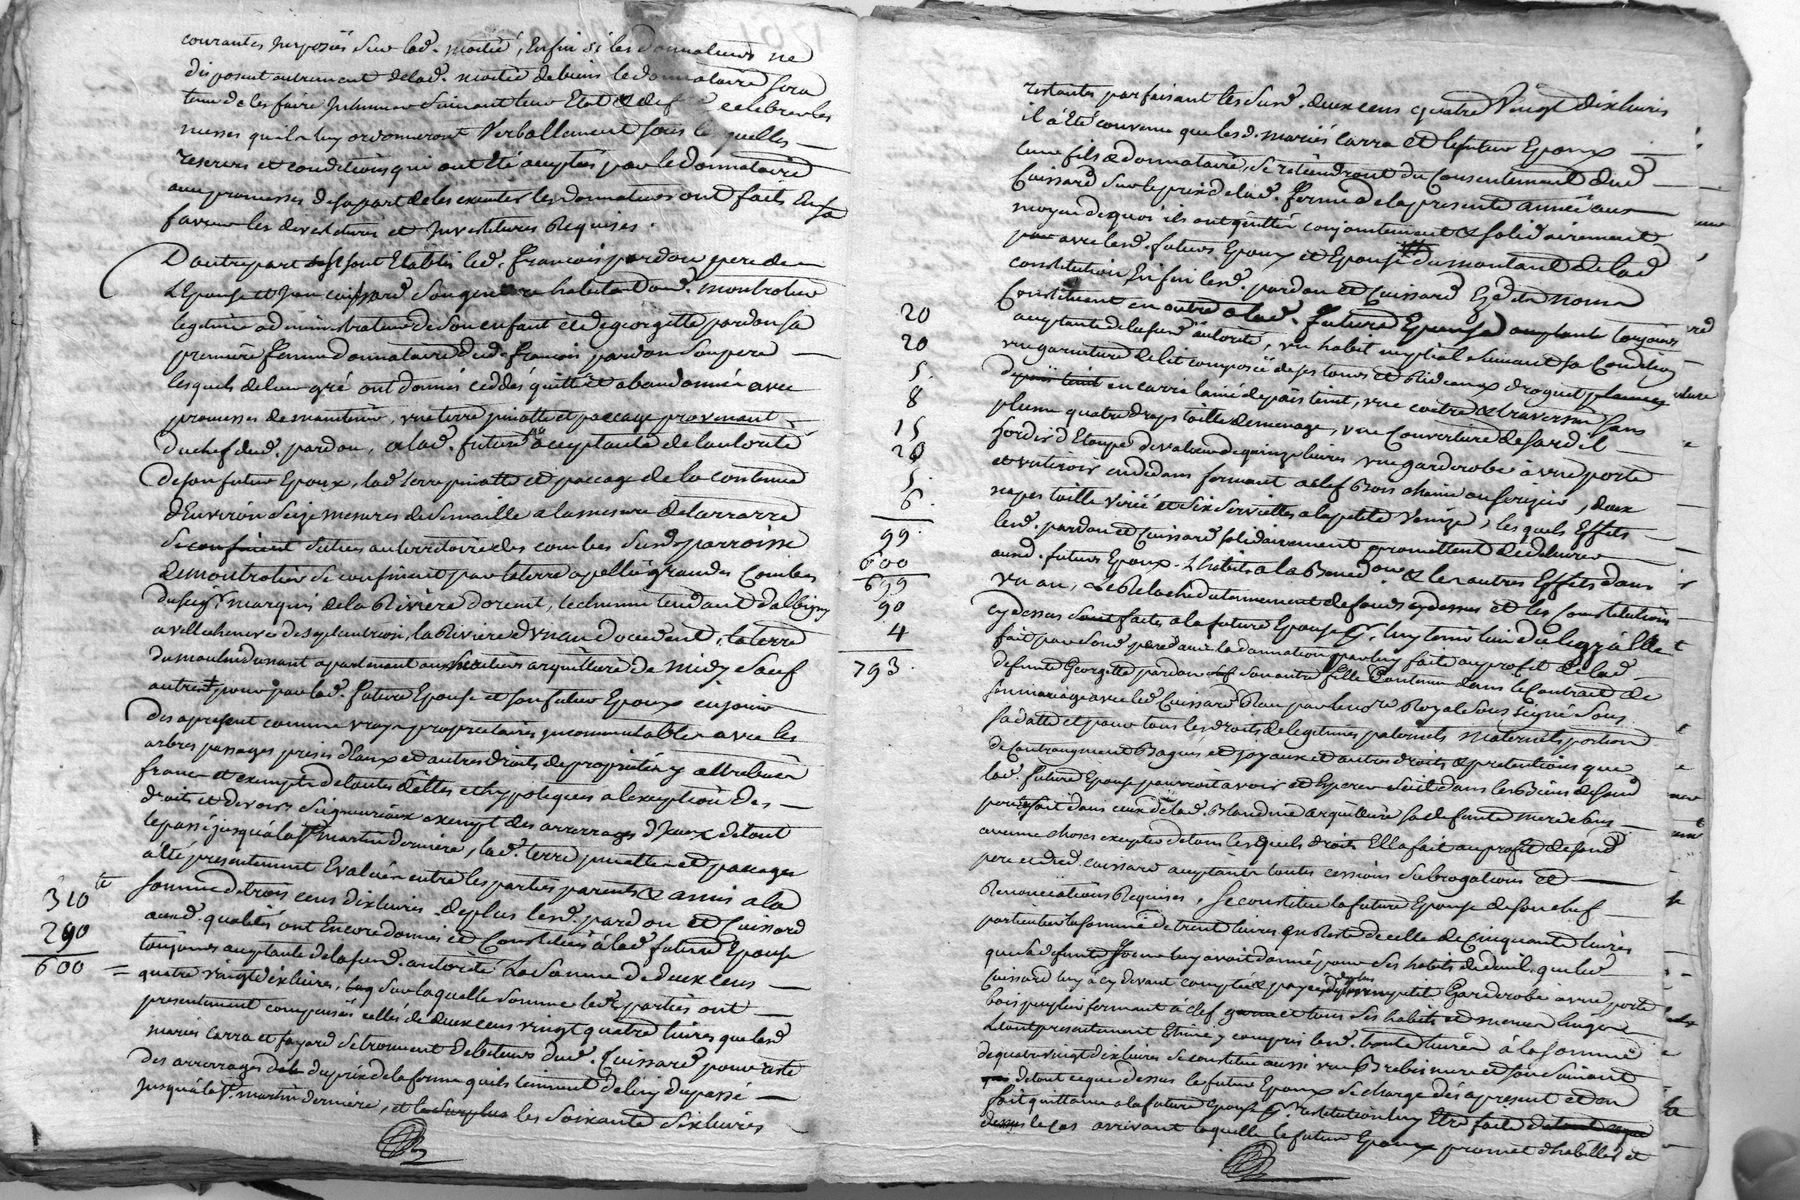 courantes imposés sur lad. moitié, Enfin si les donnateurs ne
disposent autrement delad. moitié de biens le donnataire sera
tenu de les faire inhumer suivant leur Etat & de celebrer les
messes qu'ils luy ordonneront Verballement sous lesquelles
reserves et conditions qui ont été acceptés par le donnataire
avec promesses de sa part de les executer les donnateurs ont faits En sa
faveur les devestitures et Investitures Requises.
D'autre part sont Etablis led. françois pardon pere de
L'Epouse et Jean cuissard son gendre habitant aud. montrotier
legitime administrateur de son enfant & de georgette pardon sa
premiere femme donnataire dud. françois pardon son pere
lesquels de leur gré ont donnés ceddés quitté et abandonnés avec
promesses de maintenir, une terre pinatte et paccage provenant
du chef dud. pardon, a lad. future acceptante de l'autorité
de son futur Epoux, lad. terre pinatte et paccage de la contenue
d'Environ seize mesures de semaille a la mesure de larrarre
situés au territoire des combes susd. parroisse
de montrotier se confinent par la terre appellé grandes Combes
du seigr. marquis de la Riviere d'orient, le chemin tendant d'albigny
a villecheneve de septentrion, la Riviere d' d'occident, la terre
du moulin dunant apartenant aux heritiers arquilliere de midy sauf
autres pour par lad. future Epouse et son futur Epoux en jouir
des a present comme vrays proprietaires incommutables avec les
arbres passages prises d'Eaux et autres droits de proprietés y attribués
franc et exempte de toutes dettes et hypoteques a l'exception des
droits et devoirs seigneuriaux exempt des arrerages d'Iceux de tout
le passé jusqu'a la St. martin derniere, lad. terre pinatte et paccages
a été presentement Evalués entre les parties parents & amis a la
310 tt somme de trois cens dix livres. de plus lesd. pardon et Cuissard
auxd. qualités ont Encore donnés et Constitués à lad. future Epouse
290 toujours acceptante de la susd. autorité La somme de deux cens
600 = quatre vingt dix livres, sur laquelle somme lesd. parties ont
presentement compensés celles de deux cens vingt quatre livres que lesd.
mariés carra et fayard se trouvent debiteurs dud. Cuissard pour reste
des arrerages du prix de la ferme qu'ils tiennent de luy du passé
jusqu'a la St. martin derniere, et les soixante six livres
restantes parfaisant les susd. deux cens quatre Vingt dix livres
il a été convenu que lesd. mariés carra et le futur Epoux
leur fils & donnataire, se retiendront du Consentement dud.
Cuissard sur le prix de lad. ferme de la presente année au
moyen de quoi ils ont quitté conjointement & solidairement
avec lesd. futurs Epoux et Epouse du montant de lad.
constitution Enfin lesd. pardon et Cuissard
20 Constituent en outre a lad. future Epouse acceptante toujours
20 acceptante de la susd. autorité, un habit nuptial suivant sa Condition
5. une garniture de lit composée de ses tours et Rideaux droguet
8 en carré lainé de pais teint, une coetre & traversin sans
15 plume quatre draps toille de menage, une Couverture de sardil
20 sordis d'Etoupe de valeur de quinze livres une garderobe à une porte
5. et un tiroir en dedans fermant a clef Bois chaine ou serizier, deux
6. napes toille virée et six serviettes a la petite Venize, lesquels Effets
99. lesd. pardon et Cuissard solidairement promettent de delivrer
600 auxd. futurs Epoux. L'habit a la Bened.on & les autres Effets dans
699 un an, & le Relachedutannement de fonds cy dessus et les Constitutions
90 cy dessus faites a la future Epouse luy tenir lieu de legz à elle
4 fait par son pere dans la donnation par luy faite au profit de lad.
793. defunte Georgette pardon son autre fille Contenue dans le Contrat de
son mariage avec led. Cuissard Reçu par le no.re Royal sous signé sous
sa datte et pour tous les droits de legitimes paternels maternels portion
de Contraugment Bagues et joyaux et autres droits & pretentions que
lad. future Epouse pourroit avoir et Esperer soit dans les Biens de sond.
pere soit dans ceux de lad. Blandine arquilliere sa defunte mere sans
aucunes choses excepter de tous lesquels droits Elle fait au profit de sond.
pere et dud. cuissard acceptants toutes cessions subrogations et
Renonciations Requises, se constitue la future Epouse de son chef
particulier la somme de trente livres qui reste de celle de Cinquante livres
que sa defunte soeur luy avoit donné pour ses habits de deuil. que led.
Cuissard luy a cy devant compté & payée de plus un petit Garderobe à une porte
bois peuplier fermant à clef et tous ses habits et menu linge
le tout presentement Estimé y compris lesd. trente livres à la somme
de quatre vingt dix livres se constitue aussi une Brebis mere et son suivant
de tout ce que dessus le futur Epoux se charge dès a present et en
fait quittance a la future Epouse restitution luy être faite
le cas arrivant laquelle le futur Epoux promet d'habiller et